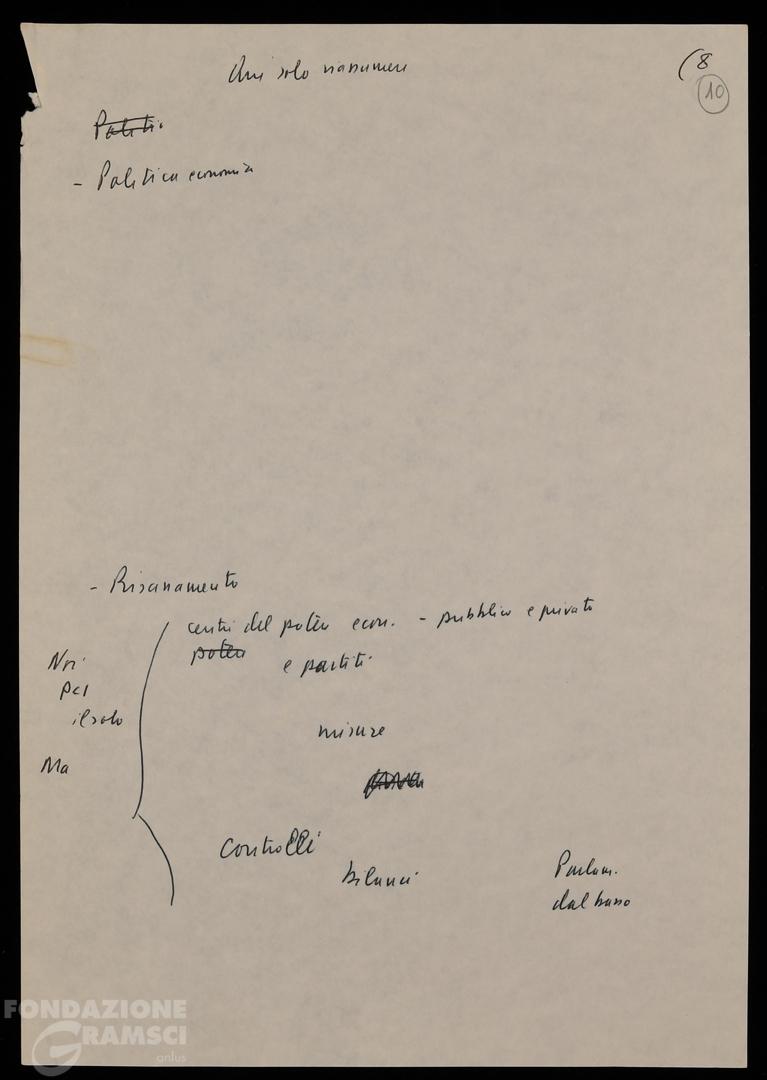 Qui solo riassumere
(8
10
Politi
- Politica economia
- Risanamento
centri del potere econ. - pubblico e privato
potere
e partiti
Noi
PCI
il solo
Ma
misure
controlli
bilanci
Parlam.
dal basso
FONDAZIONE
GRAMSCI
onlus